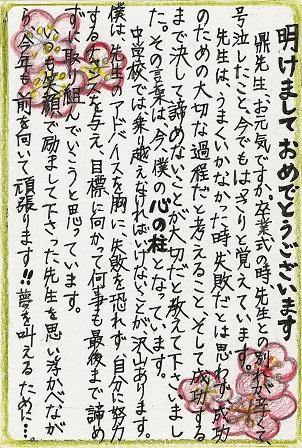 明けましておめでとうございます
鼎先生、お元気ですか。卒業式の時先生との別れが辛く、
号泣したこと、今でもはっきりと覚えています。
先生は、うまくいかなかった時失敗だとは思わず、成功
のための大切な過程だと考えること、そして成功する
まで決して諦めないことが大切だと教えて下さいまし
た。その言葉は、今、僕の心の柱となっています。
中学校では乗り越えなければいけないことが沢山あります。
僕は、先生のアドバイスを胸に、失敗を恐れず、自分に努力
するチャンスを与え、目標に向かって何事も最後まで諦め
ずに取り組んでいこうと思っています。
いつも笑顔で励まして下さった先生を思い浮かべなが
ら、今年も前を向いて頑張ります!!夢を叶えるために…。